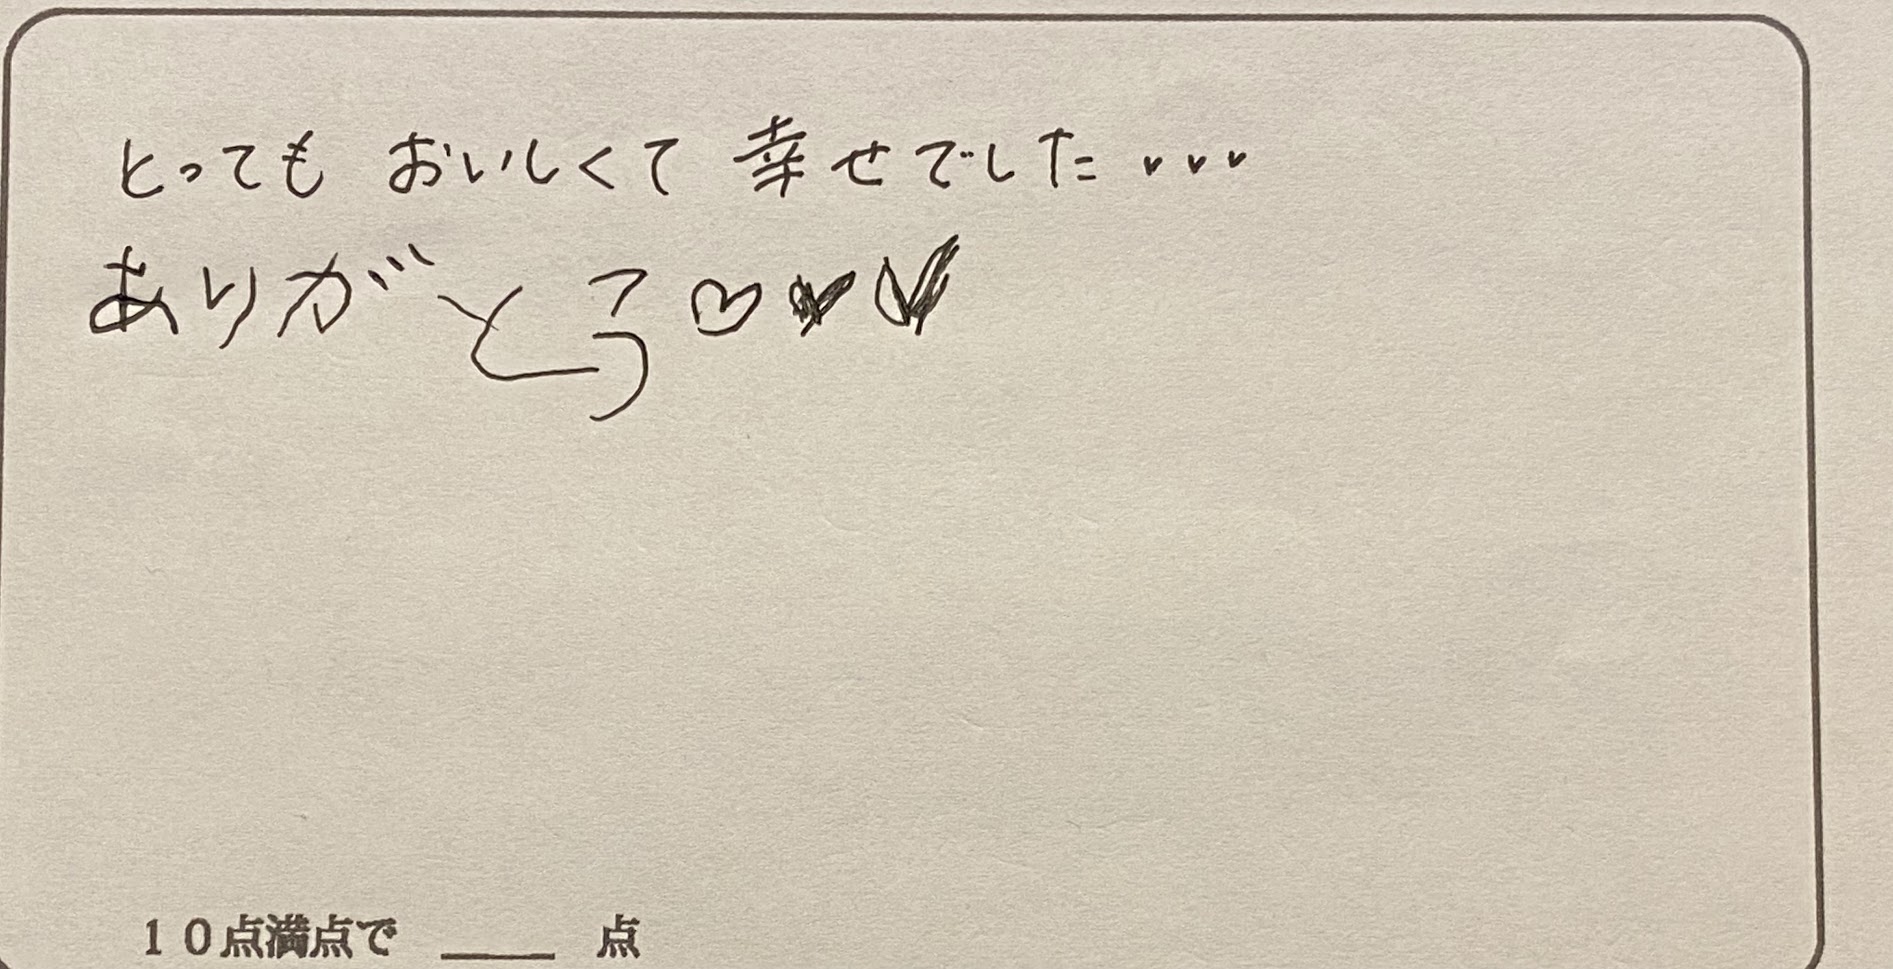 とっても おいしくて 幸せでした♥♥♥
ありがとう♡♥♥
10点満点で ____ 点